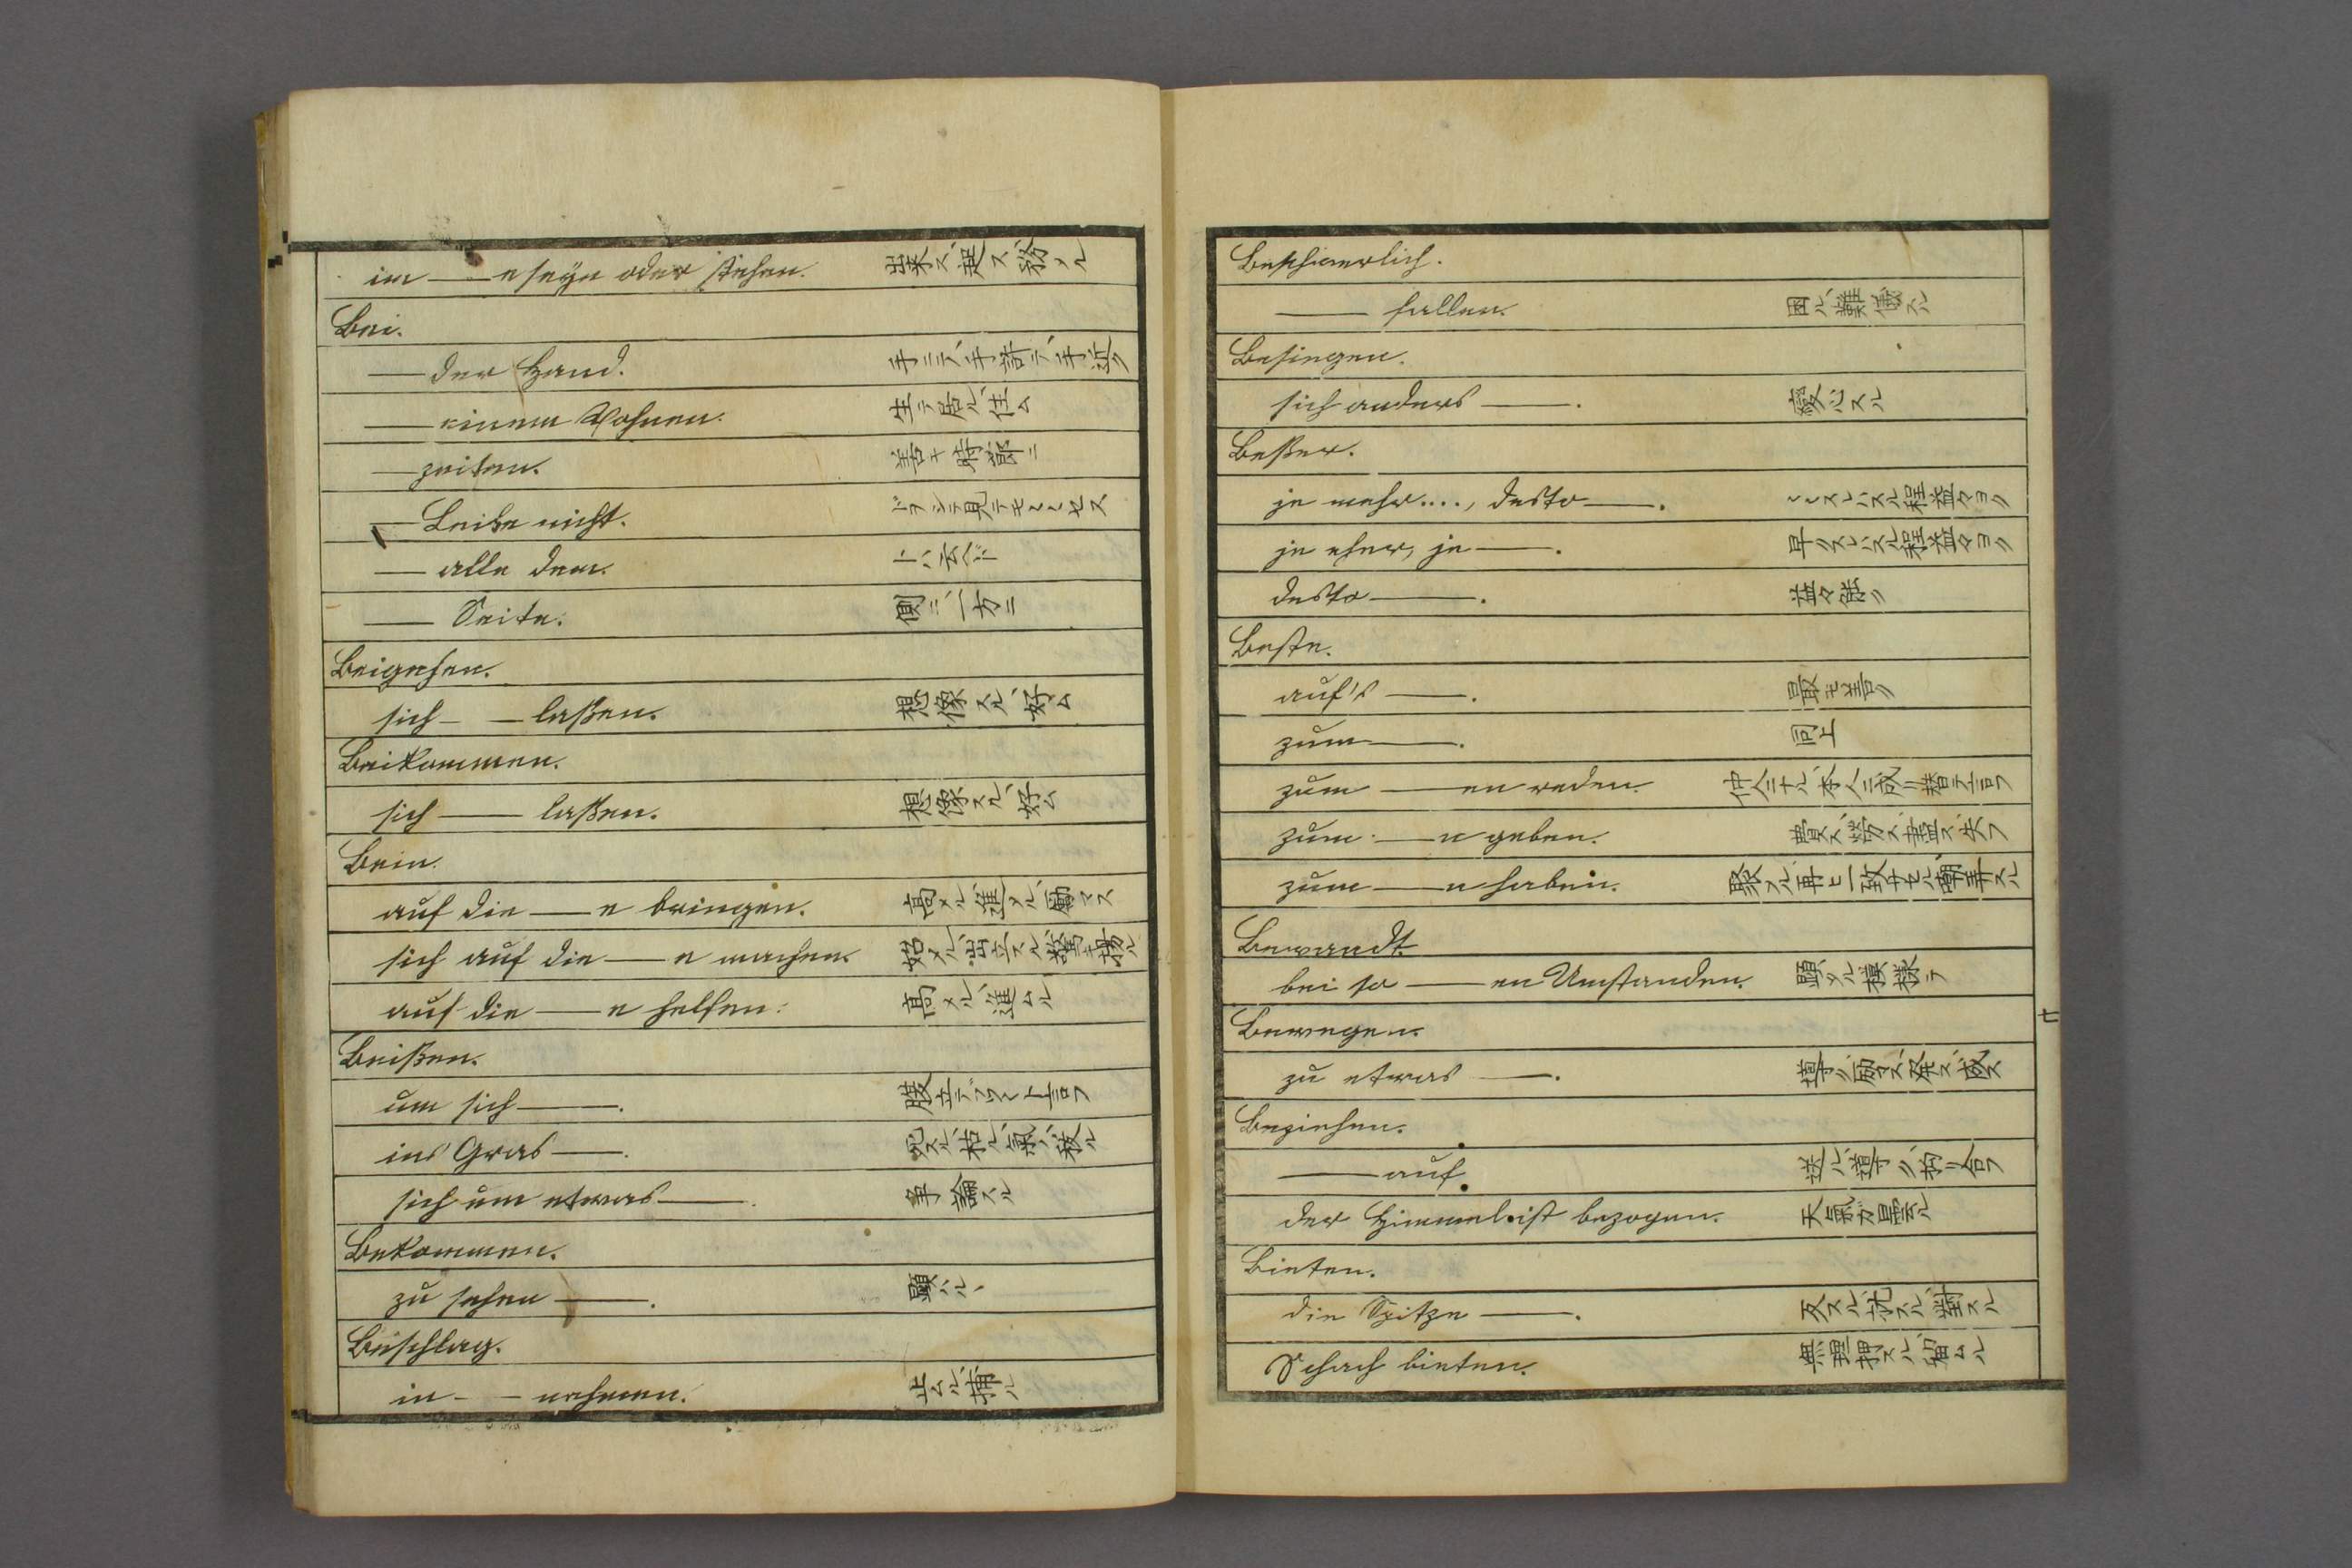 im — e seyn oder stehen. 出来ス、起ス、務メル
Bei.
— der Hand. 手ニテ、手許ニテ、手近ク
— einem Wohnen. 生テ居ル、住ム
— zeiten. 善キ時節ニ
— Leibe nicht.
— alle dem. トハ云ヘド
— Seite. 側ニ、一方ニ
Beigehen.
sich — — laßen. 想像スル、好ム
Beikommen.
sich — laßen. 想像スル、好ム
Bein.
auf die — e bringen. 高メル、進メル、勵マス
sich auf die — e machen. 始メル、出立スル
auf die — e helfen. 高メル、進ムル
Beißen.
um sich —.
ins Gras —. 死スル、枯ル
sich um etwas —. 争論スル
Bekommen.
zu sehen —. 顕ハル
Beschlag.
in — — nehmen. 止ムル、捕ル
Beschwerlich.
— fallen. 困ル、難儀スル
Besinnen.
sich anders —. 変心スル
Beßer.
je mehr...., desto —. スレハスル程益々ヨク
je eher, je —. 早クスレハスル程益々ヨク
desto —. 益々能ク
Beste.
auf's —. 最モ善ク
zum —. 同上
zum — en reden.
zum — n geben.
zum — n haben.
Bewandt.
bei so — en Umstanden. 顕ル模様テ
Bewegen.
zu etwas —.
Beziehen.
— auf.
der Himmel ist bezogen. 天氣カ曇ル
Bieten.
die Spitze —. 反スル、抗スル、對スル
Schach bieten. 無理押スル、留ムル